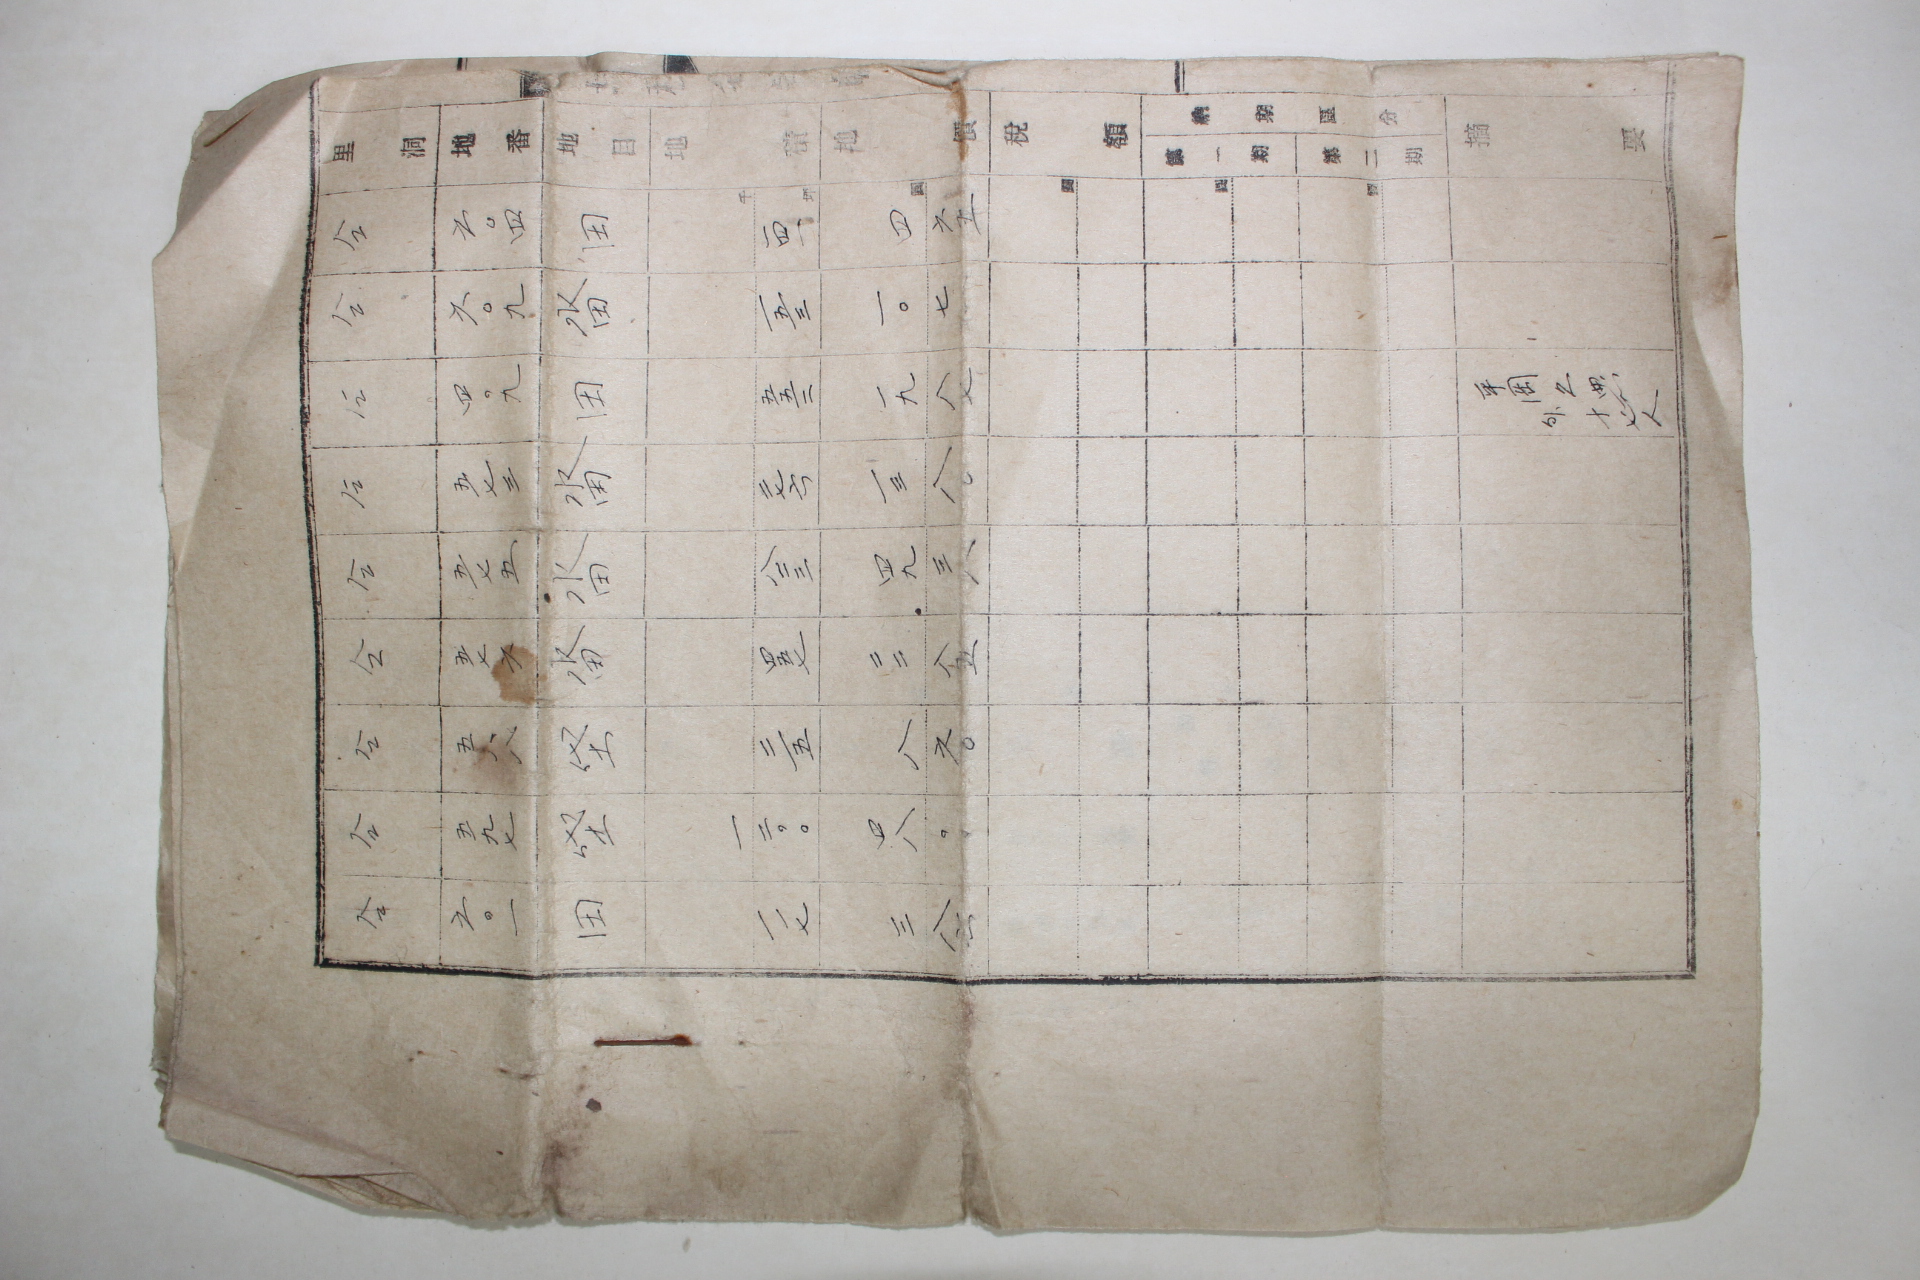 里洞 地番 地目 地積 地價 稅額 納期區分 第一期 第二期 摘要
千 坪 圓
仝 六〇四 田 一四一 四 六五
仝 六〇九 畓 一五三 一〇 七
仝 四〇九 田 五五二 一九 八七 平岡
外十七人
仝 五七三 畓 一三 八〇
仝 五七五 畓 八二三 四九 三八
仝 五七六 畓 四五七 八五
仝 五八八 垈 二一五 八 六〇
仝 五九七 垈 一二〇〇 四八 〇〇
仝 六〇一 田 一一七 三 八六